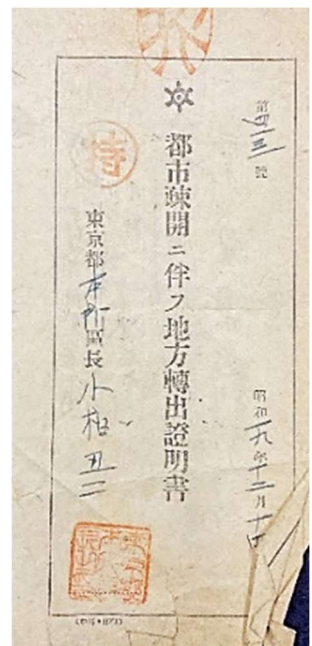 第四一三號
昭和一九年十二月十日
都市疎開ニ伴フ地方轉出證明書
特
東京都本所區長 小柏丑二